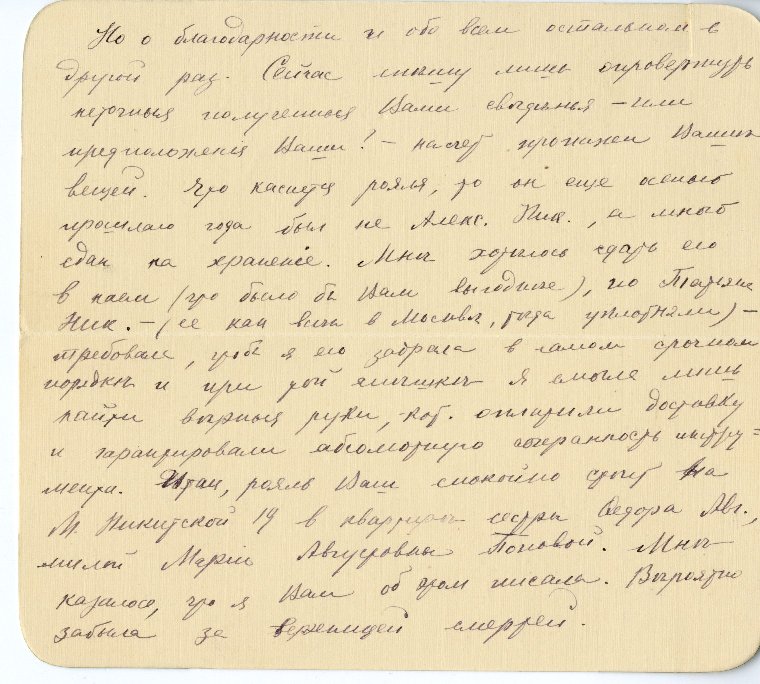 Но о благодарности и обо всем остальном в
другой раз. Сейчас пишу лишь опровергнуть
неточныя полученныя Вами свѣдѣнья – или
предположенія Ваши! – насчет пропажи Ваших
вещей. Что касается рояля, то он еще осенью
прошлаго года был не Алекс. Ник., а мною
сдан на храненіе. Мнѣ хотѣлось сдать его
в наем (что было бы Вам выгоднѣе), но Татьяна
Ник. – (ее как всѣх в Москвѣ, тогда уплотняли) –
требовала, чтобы я его забрала в самом срочном
порядкѣ и при этой спѣшкѣ я смогла лишь
найти вѣрныя руки, кот. оплатили доставку
и гарантировали абсолютную сохранность инстру=
мента. Итак, рояль Ваш спокойно стоит на
М. Никитской 19 в квартирѣ сестры Федора Авг.,
милой Маріи Августовны Поповой. Мнѣ
казалось, что я Вам об этом писала. Вѣроятно
забыла за вереницей смертей.